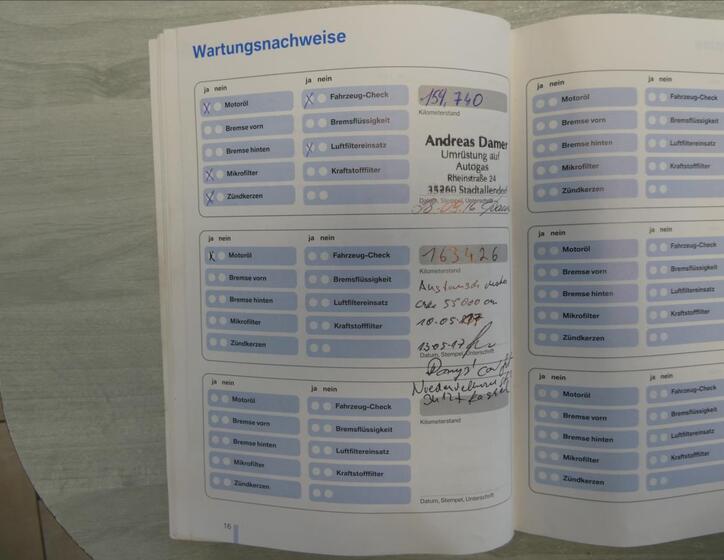 Wartungsnachweise
ja nein
ja nein
Motoröl
Fahrzeug-Check
159,740
Kilometerstand
Bremse vorn
Bremsflüssigkeit
Bremse hinten
Luftfiltereinsatz
Mikrofilter
Kraftstofffilter
Zündkerzen
Andreas Damer
Umrüstung auf
Autogas
Rheinstraße 24
35260 Stadtallendorf
Datum, Stempel, Unterschrift
ja nein
ja nein
Motoröl
Fahrzeug-Check
163426
Kilometerstand
Bremse vorn
Bremsflüssigkeit
Bremse hinten
Luftfiltereinsatz
Mikrofilter
Kraftstofffilter
Zündkerzen
10-05-17
13-05-17
Datum, Stempel, Unterschrift
ja nein
ja nein
Motoröl
Fahrzeug-Check
Kilometerstand
Bremse vorn
Bremsflüssigkeit
Bremse hinten
Luftfiltereinsatz
Mikrofilter
Kraftstofffilter
Zündkerzen
Datum, Stempel, Unterschrift
16
ja nein
ja nein
Motoröl
Fahrzeug-Check
Bremse vorn
Bremsflüssigkeit
Bremse hinten
Luftfiltereinsatz
Mikrofilter
Kraftstofffilter
Zündkerzen
ja nein
ja nein
Motoröl
Fahrzeug-Check
Bremse vorn
Bremsflüssigkeit
Bremse hinten
Luftfiltereinsatz
Mikrofilter
Kraftstofffilter
Zündkerzen
ja nein
ja nein
Motoröl
Fahrzeug-Check
Bremse vorn
Bremsflüssigkeit
Bremse hinten
Luftfiltereinsatz
Mikrofilter
Kraftstofffilter
Zündkerzen